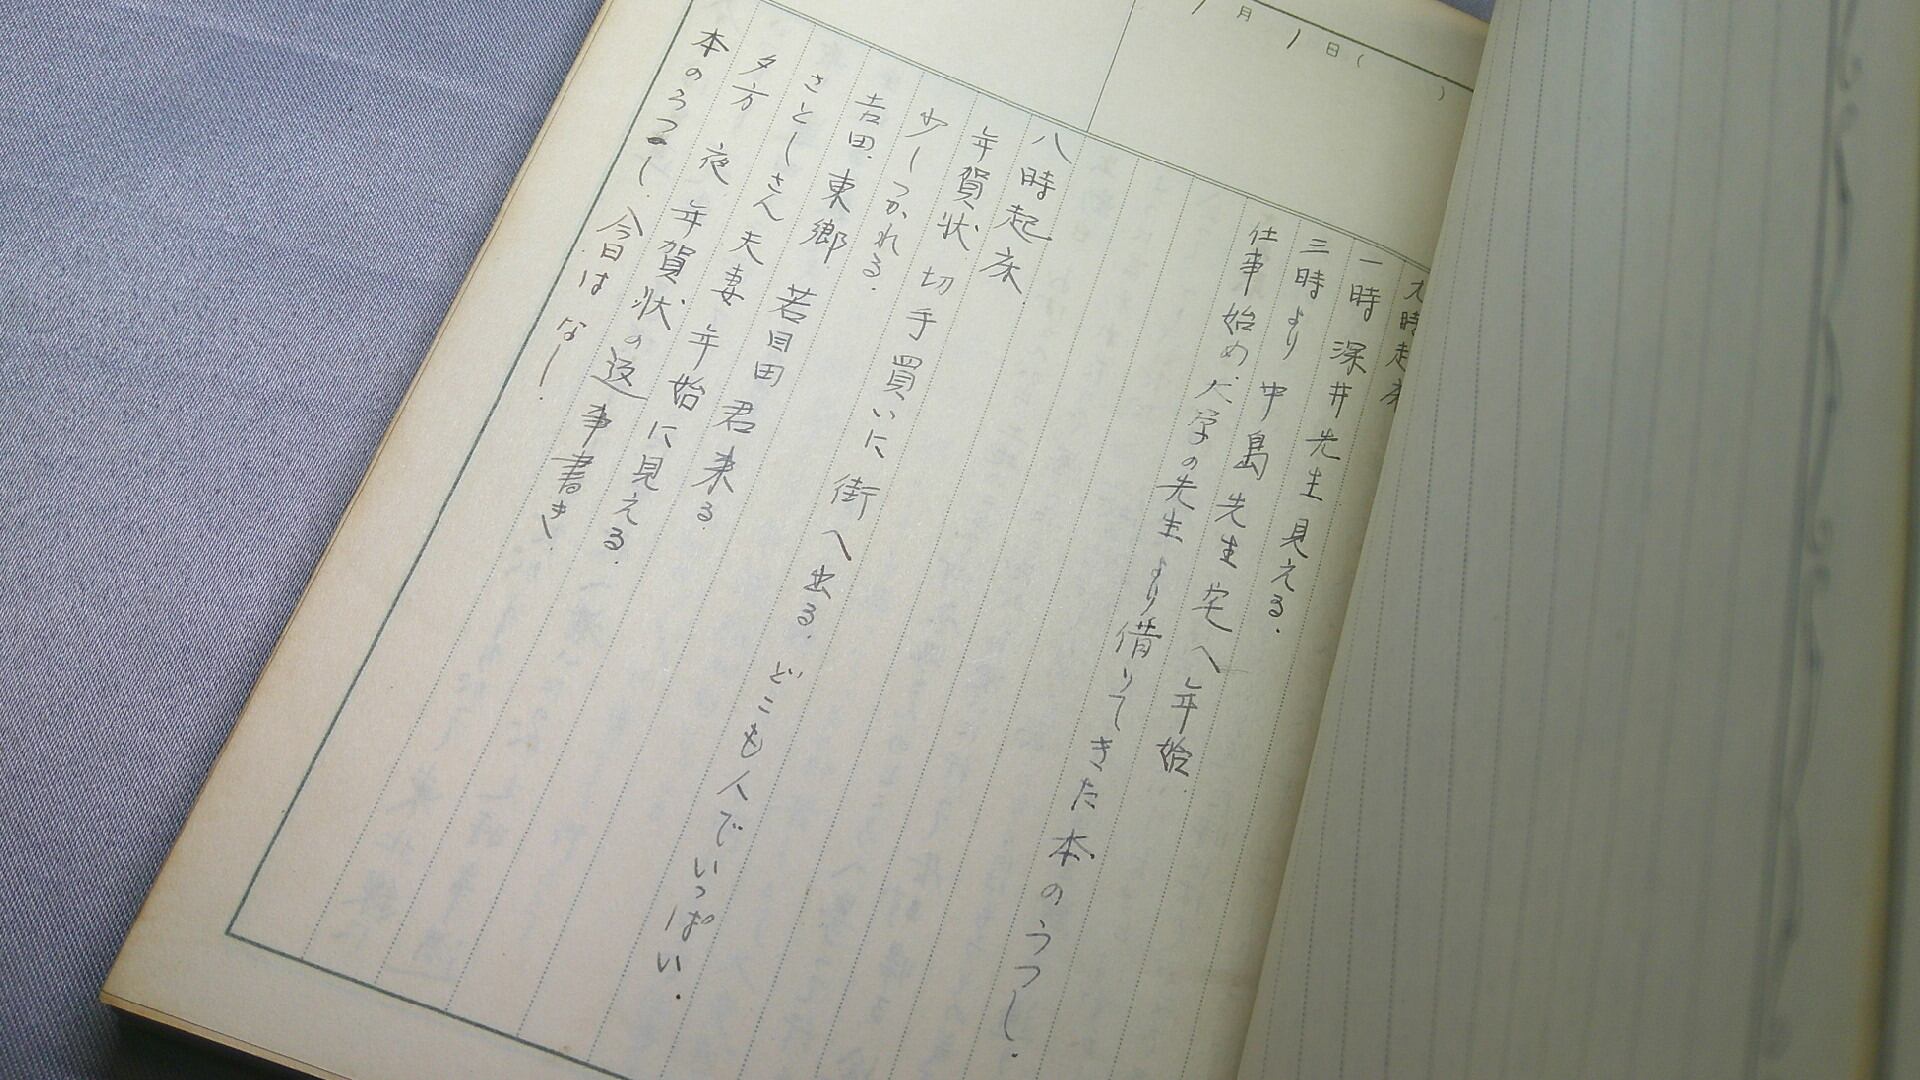 1月1日( )
九時起床
一時 深井先生見える.
三時より 中島先生宅へ年始.
仕事始め.大学の先生より借りてきた本のうつし.
八時起床.
年賀状 切手買いに街へ出る. どこも人でいっぱい.
少しつかれる.
吉田.東郷. 若目田君来る.
さとしさん夫妻 年始に見える.
夕方 夜 年賀状の返事書き.
本のうつし. 今日はなし.